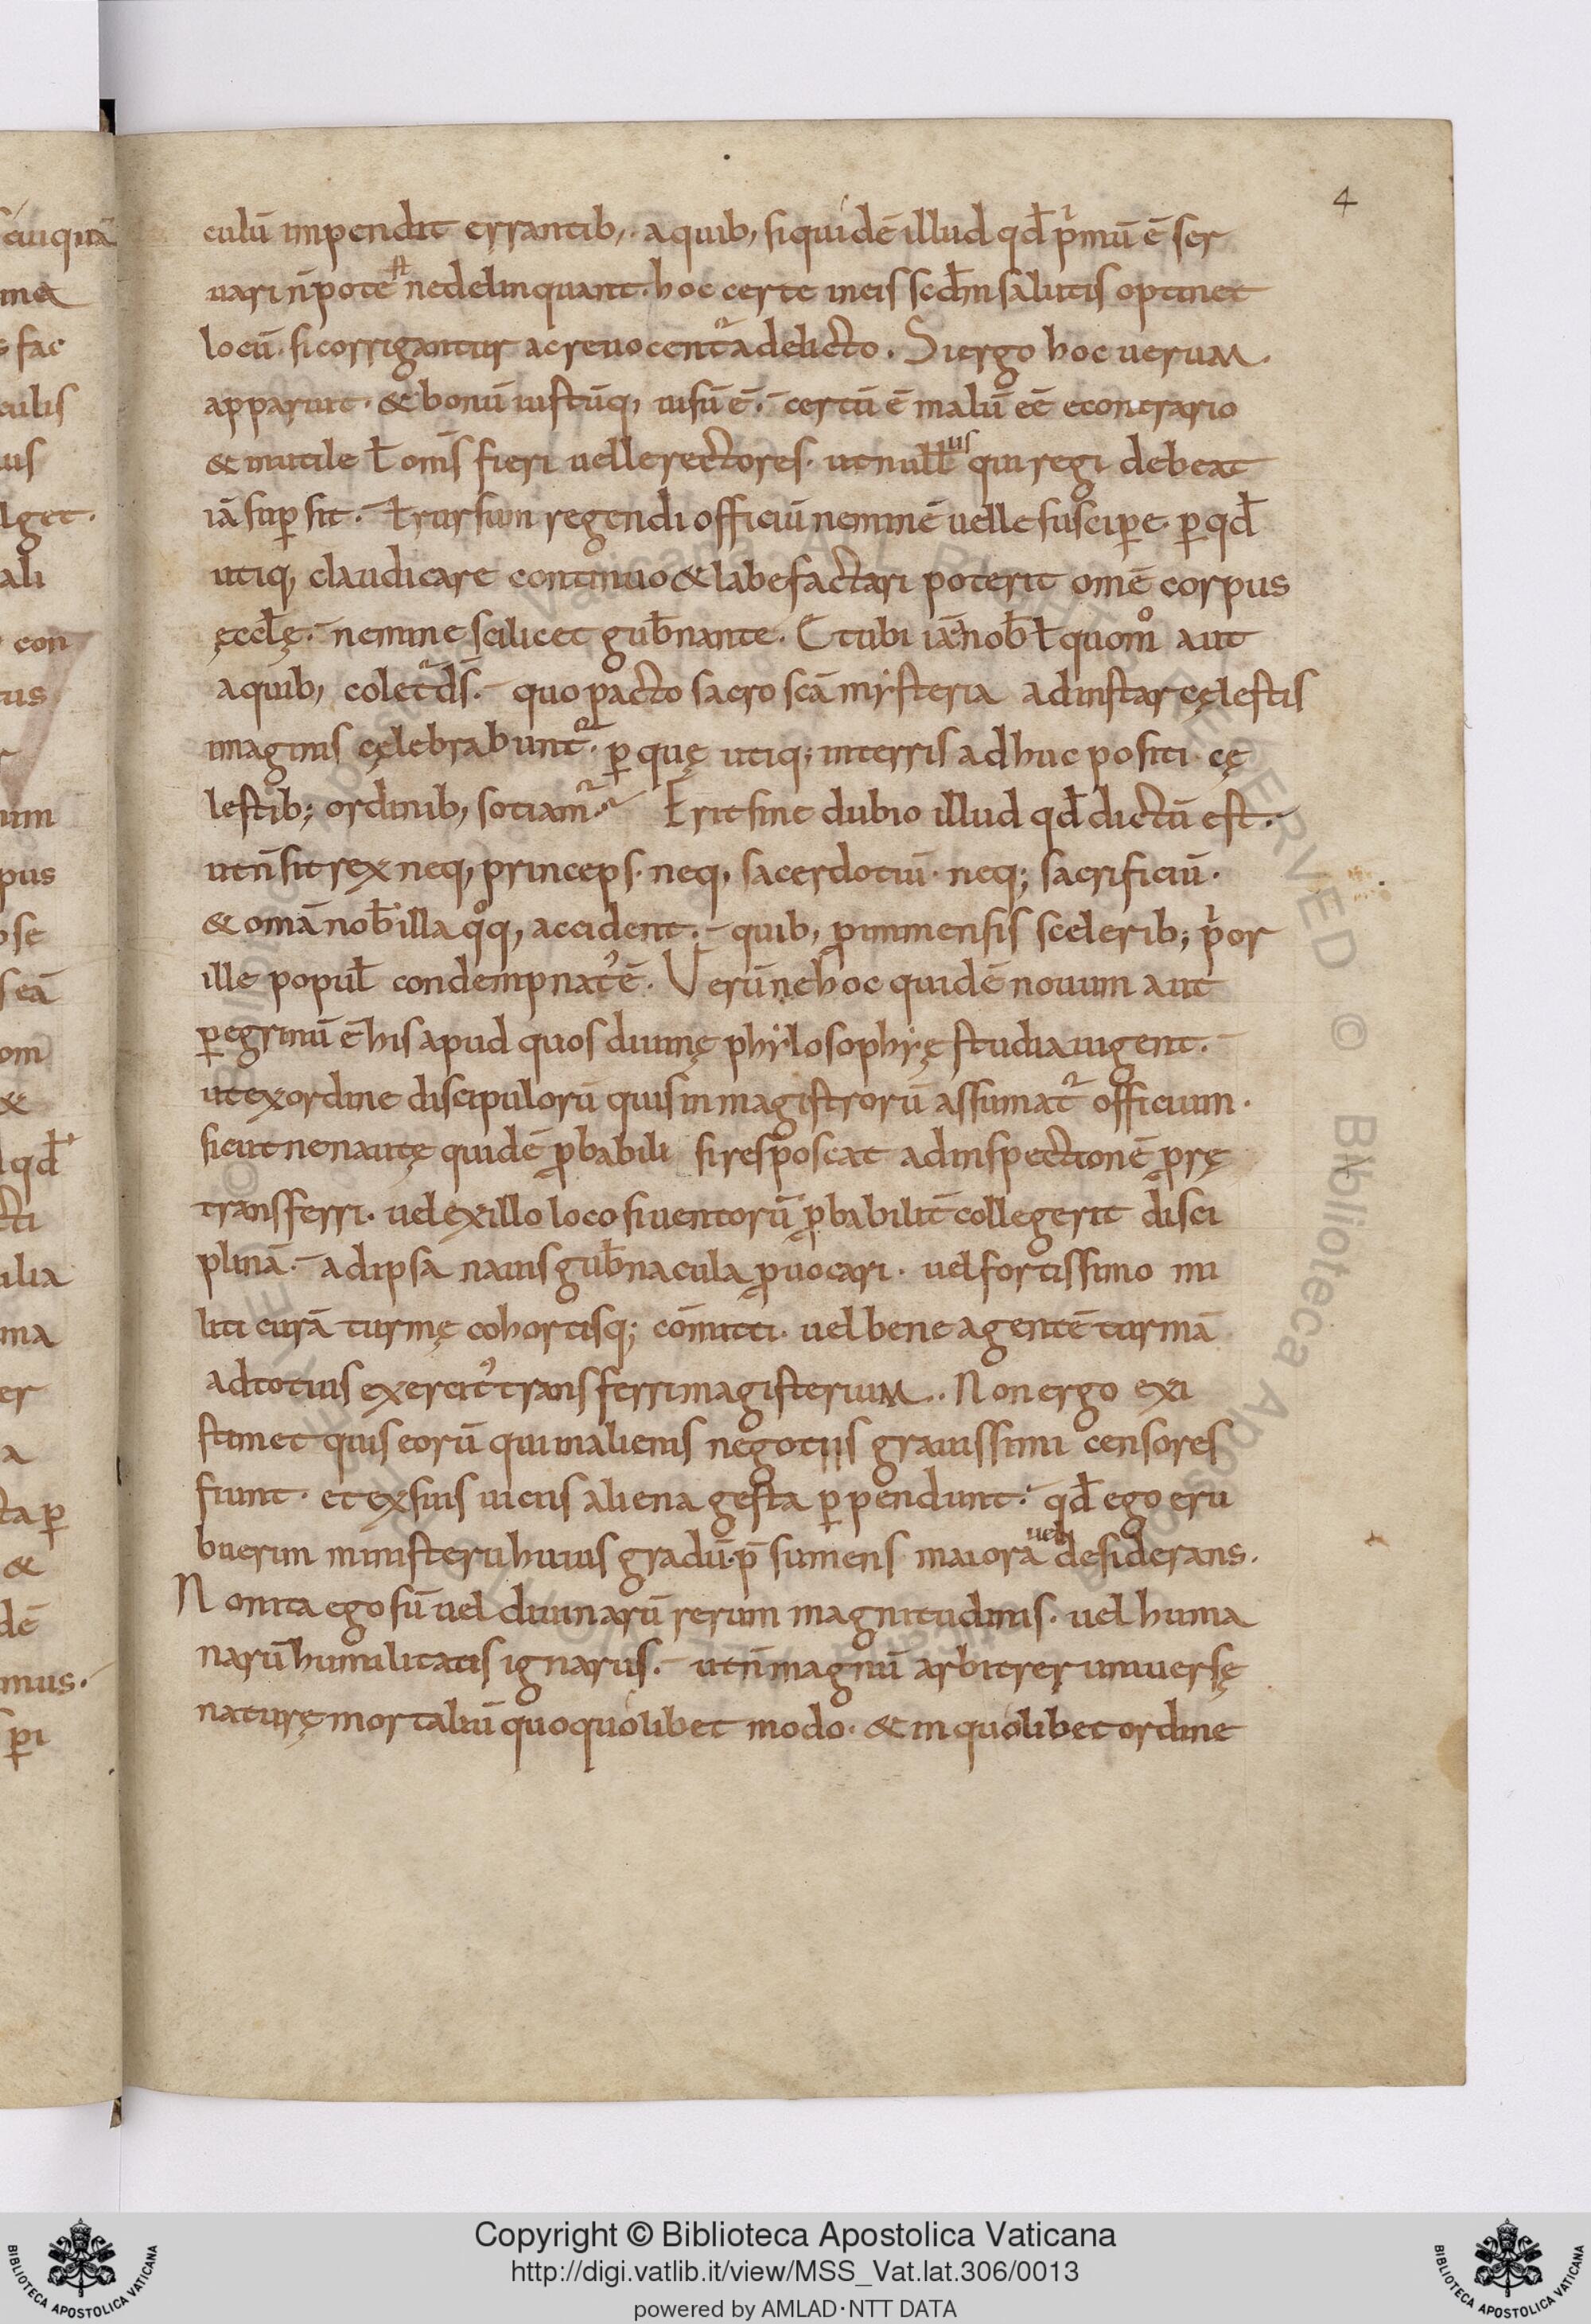 4
culū impendit errantib; aquib; siquidē illud qđ pͥmū ē ser
uari n̄ pote st nedelinquant. hoc certe ineis scđm salutis optinet
locū. si corrigantur ac reuocent᷑ adelicto. Siergo hoc uerum.
apparuit. & bonū iustūq; uisū ē. certū ē malū eē econtrario
& inutile ł om̄s fieri uelle rectores. ut null us qui regi debeat
iā suꝑsit. ł rursum regendi officiū neminē uelle susciꝑe. ꝑ qđ
utiq; claudicare continuo & labefactari poterit om̄e corpus
ęccłę. nemine scilicet gub̄nante. Et ubi iā a nob̄ ł quom̊ aut
aquib; colet᷑ ds̄. quo pacto sacro scā mẏsteria adinstar cęlestis
imaginis cęlebrabunt᷑. ꝑ quę utiq; interris adhuc positi. cę
lestib; ordinib; sotiam᷑. Erit sine dubio illud qđ dictū est.
ut n̄ sit rex neq; princeps. neq; sacerdotiū. neq; sacrificiū.
& om̄a nob̄ illa qͦq; accident. quib; ꝓ immensis scelerib; pͥor
ille popul̄ condempnatꝰ ē. Verū nehoc quidē nouum aut
ꝑegrinū ē his apud quos diuinę phẏlosophẏę studia uigent.
ut ex ordine discipulorū quis in magistrorū assumat᷑ officium.
sicut nenautę quidē ꝓbabili si res poscat adinspectionē ꝓrę
transferri. uel ex illo loco si uentorū ꝓbabilit̄ collegerit disci
plinā. adipsa nauis gub̄nacula ꝓuocari. uel fortissimo mi
liti curā turmę cohortisq; cōmitti. uel bene agentē turmā
ad totius exercitꝰ transferri magisterium. Non ergo exi
stimet quis eorū qui in alienis negotiis grauissimi censores
fiunt. et ex suis uiciis aliena gesta ꝑpendunt. qđ ego eru
buerim ministerii huius gradū. p̄sumens maiora uel desiderans.
Non ita ego sū uel diuinarū rerum magnitudinis. uel huma
narū humilitatis ignarus. ut n̄ magnū arbitrer uniuersę
naturę mortaliū quoquolibet modo. & in quolibet ordine
Copyright © Biblioteca Apostolica Vaticana
http://digi.vatlib.it/view/MSS_Vat.lat.306/0013
powered by AMLAD·NTT DATA
BIBLIOTECA APOSTOLICA VATICANA
BIBLIOTECA APOSTOLICA VATICANA